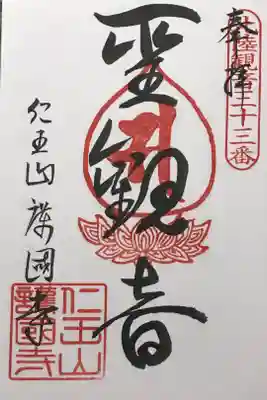 奉拝
北陸観音三十三番
聖観音
仁王山護國寺
仁王山
護国寺